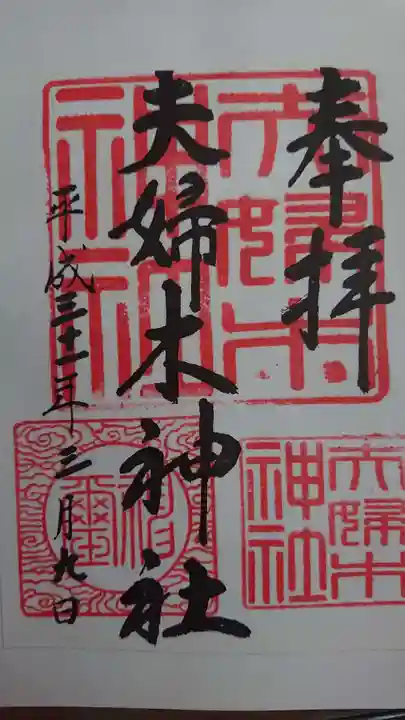 奉拝
夫婦木神社
平成三十一年三月九日
夫婦木
神社
夫婦木
神社
神璽